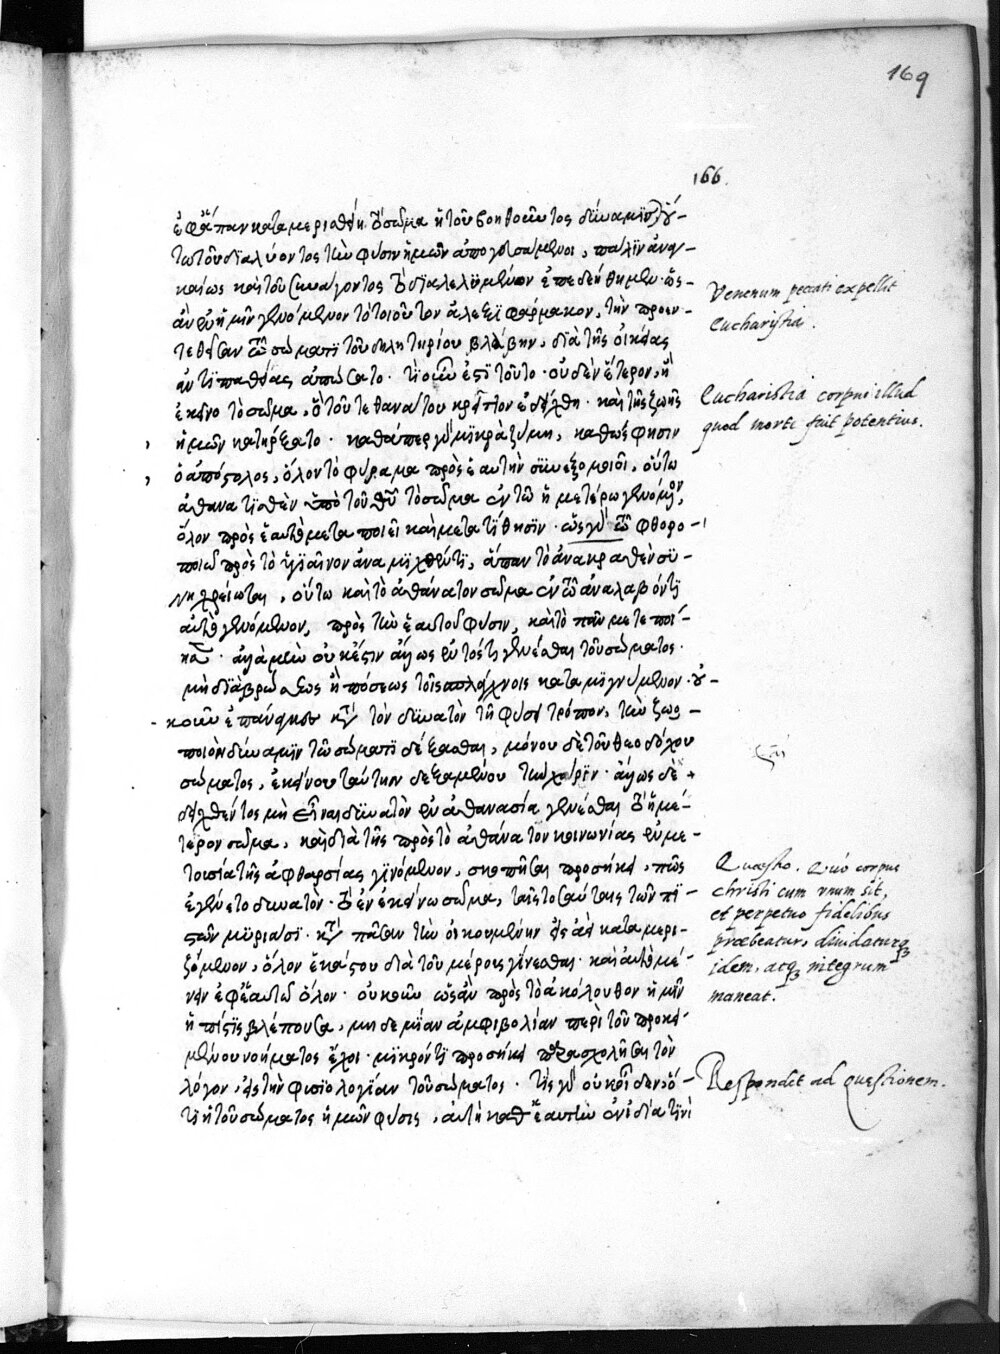 169
166.
ἐφ' ἅπαν καταμερισθείη τὸ σῶμα ἡ τοῦ βοηθοῦντος δύναμις, οὕ-
τω τοῦ διαλύοντος τὴν φύσιν ἡμῶν ἀπογευσάμενοι, πάλιν ἀναγ-
καίως καὶ τοῦ συνάγοντος τὸ διαλελυμένον ἐπεδεήθημεν· ὡς
ἂν ἐν ἡμῖν γενόμενον τὸ τοιοῦτον ἀλεξιφάρμακον, τὴν προεν-
τεθεῖσαν τῷ σώματι τοῦ δηλητηρίου βλάβην, διὰ τῆς οἰκείας
ἀντιπαθείας ἀπώσατο. τί οὖν ἐστὶ τοῦτο· οὐδὲν ἕτερον, ἢ
ἐκεῖνο τὸ σῶμα, ὃ τοῦ τε θανάτου κρεῖττον ἐδείχθη· καὶ τῆς ζωῆς
ἡμῶν κατήρξατο· καθάπερ γὰρ μικρὰ ζύμη, καθώς φησιν
ὁ ἀπόστολος, ὅλον τὸ φύραμα πρὸς ἑαυτὴν συνεξομοιοῖ, οὕτω
ἀθανατισθὲν ὑπὸ τοῦ θεοῦ τὸ σῶμα ἐν τῷ ἡμετέρῳ γενόμενον,
ὅλον πρὸς ἑαυτὸ μεταποιεῖ καὶ μετατίθησιν· ὡς γὰρ τῷ φθορο-
ποιῷ πρὸς τὸ ὑγιαῖνον ἀναμιχθέντι, ἅπαν τὸ ἀνακραθὲν συ-
νηχρείωται, οὕτω καὶ τὸ ἀθάνατον σῶμα ἐν τῷ ἀναλαβόντι
αὐτὸ γενόμενον, πρὸς τὴν ἑαυτοῦ φύσιν, καὶ τὸ πᾶν μετεποί-
ησεν· ἀλλὰ μὴν οὐκ ἔστιν ἄλλως ἐντός τι γενέσθαι τοῦ σώματος·
μὴ διὰ βρώσεως ἢ πόσεως τοῖς σπλάγχνοις καταμιγνύμενον· οὐ-
κοῦν ἐπάναγκες κατὰ τὸν δυνατὸν τῇ φύσει τρόπον, τὴν ζωο-
ποιὸν δύναμιν τῷ σώματι δέξασθαι, μόνου δὲ τοῦ θεοδόχου
σώματος, ἐκείνου ταύτην δεξαμένου τὴν χάριν· ἄλλως δὲ
δειχθέντος μὴ εἶναι δυνατὸν ἐν ἀθανασίᾳ γενέσθαι τὸ ἡμέ-
τερον σῶμα, καὶ διὰ τῆς πρὸς τὸ ἀθάνατον κοινωνίας ἐν με-
τουσίᾳ τῆς ἀφθαρσίας γινόμενον, σκοπῆσαι προσήκει, πῶς
ἐγένετο δυνατὸν τὸ ἓν ἐκεῖνο σῶμα, ταῖς τοσαύταις τῶν πι-
στῶν μυριάσι· κατὰ πᾶσαν τὴν οἰκουμένην εἰς ἀεὶ καταμερι-
ζόμενον, ὅλον ἑκάστου διὰ τοῦ μέρους γίνεσθαι· καὶ αὐτὸ μέ-
νειν ἐφ' ἑαυτῷ ὅλον· οὐκοῦν ὡς ἂν πρὸς τὸ ἀκόλουθον ἡμῖν
ἡ πίστις βλέπουσα, μηδεμίαν ἀμφιβολίαν περὶ τοῦ προκει-
μένου νοήματος ἔχοι· μικρόν τι προσήκει παρασχολῆσαι τὸν
λόγον, εἰς τὴν φυσιολογίαν τοῦ σώματος· τίς γὰρ οὐκ οἶδεν, ὅ-
τι ἡ τοῦ σώματος ἡμῶν φύσις, αὐτὴ καθ' ἑαυτὴν ἐν ἰδίᾳ τινὶ
Venenum peccati expellit
Eucharistia.
Eucharistia corpus illud
quod morte fuit potentius.
Quaestio. Quo corpus
christi cum vnum sit,
et perpetuo fidelibus
præbeatur, diuidaturq3
idem, atq3 integrum
maneat.
Respondet ad quæstionem.